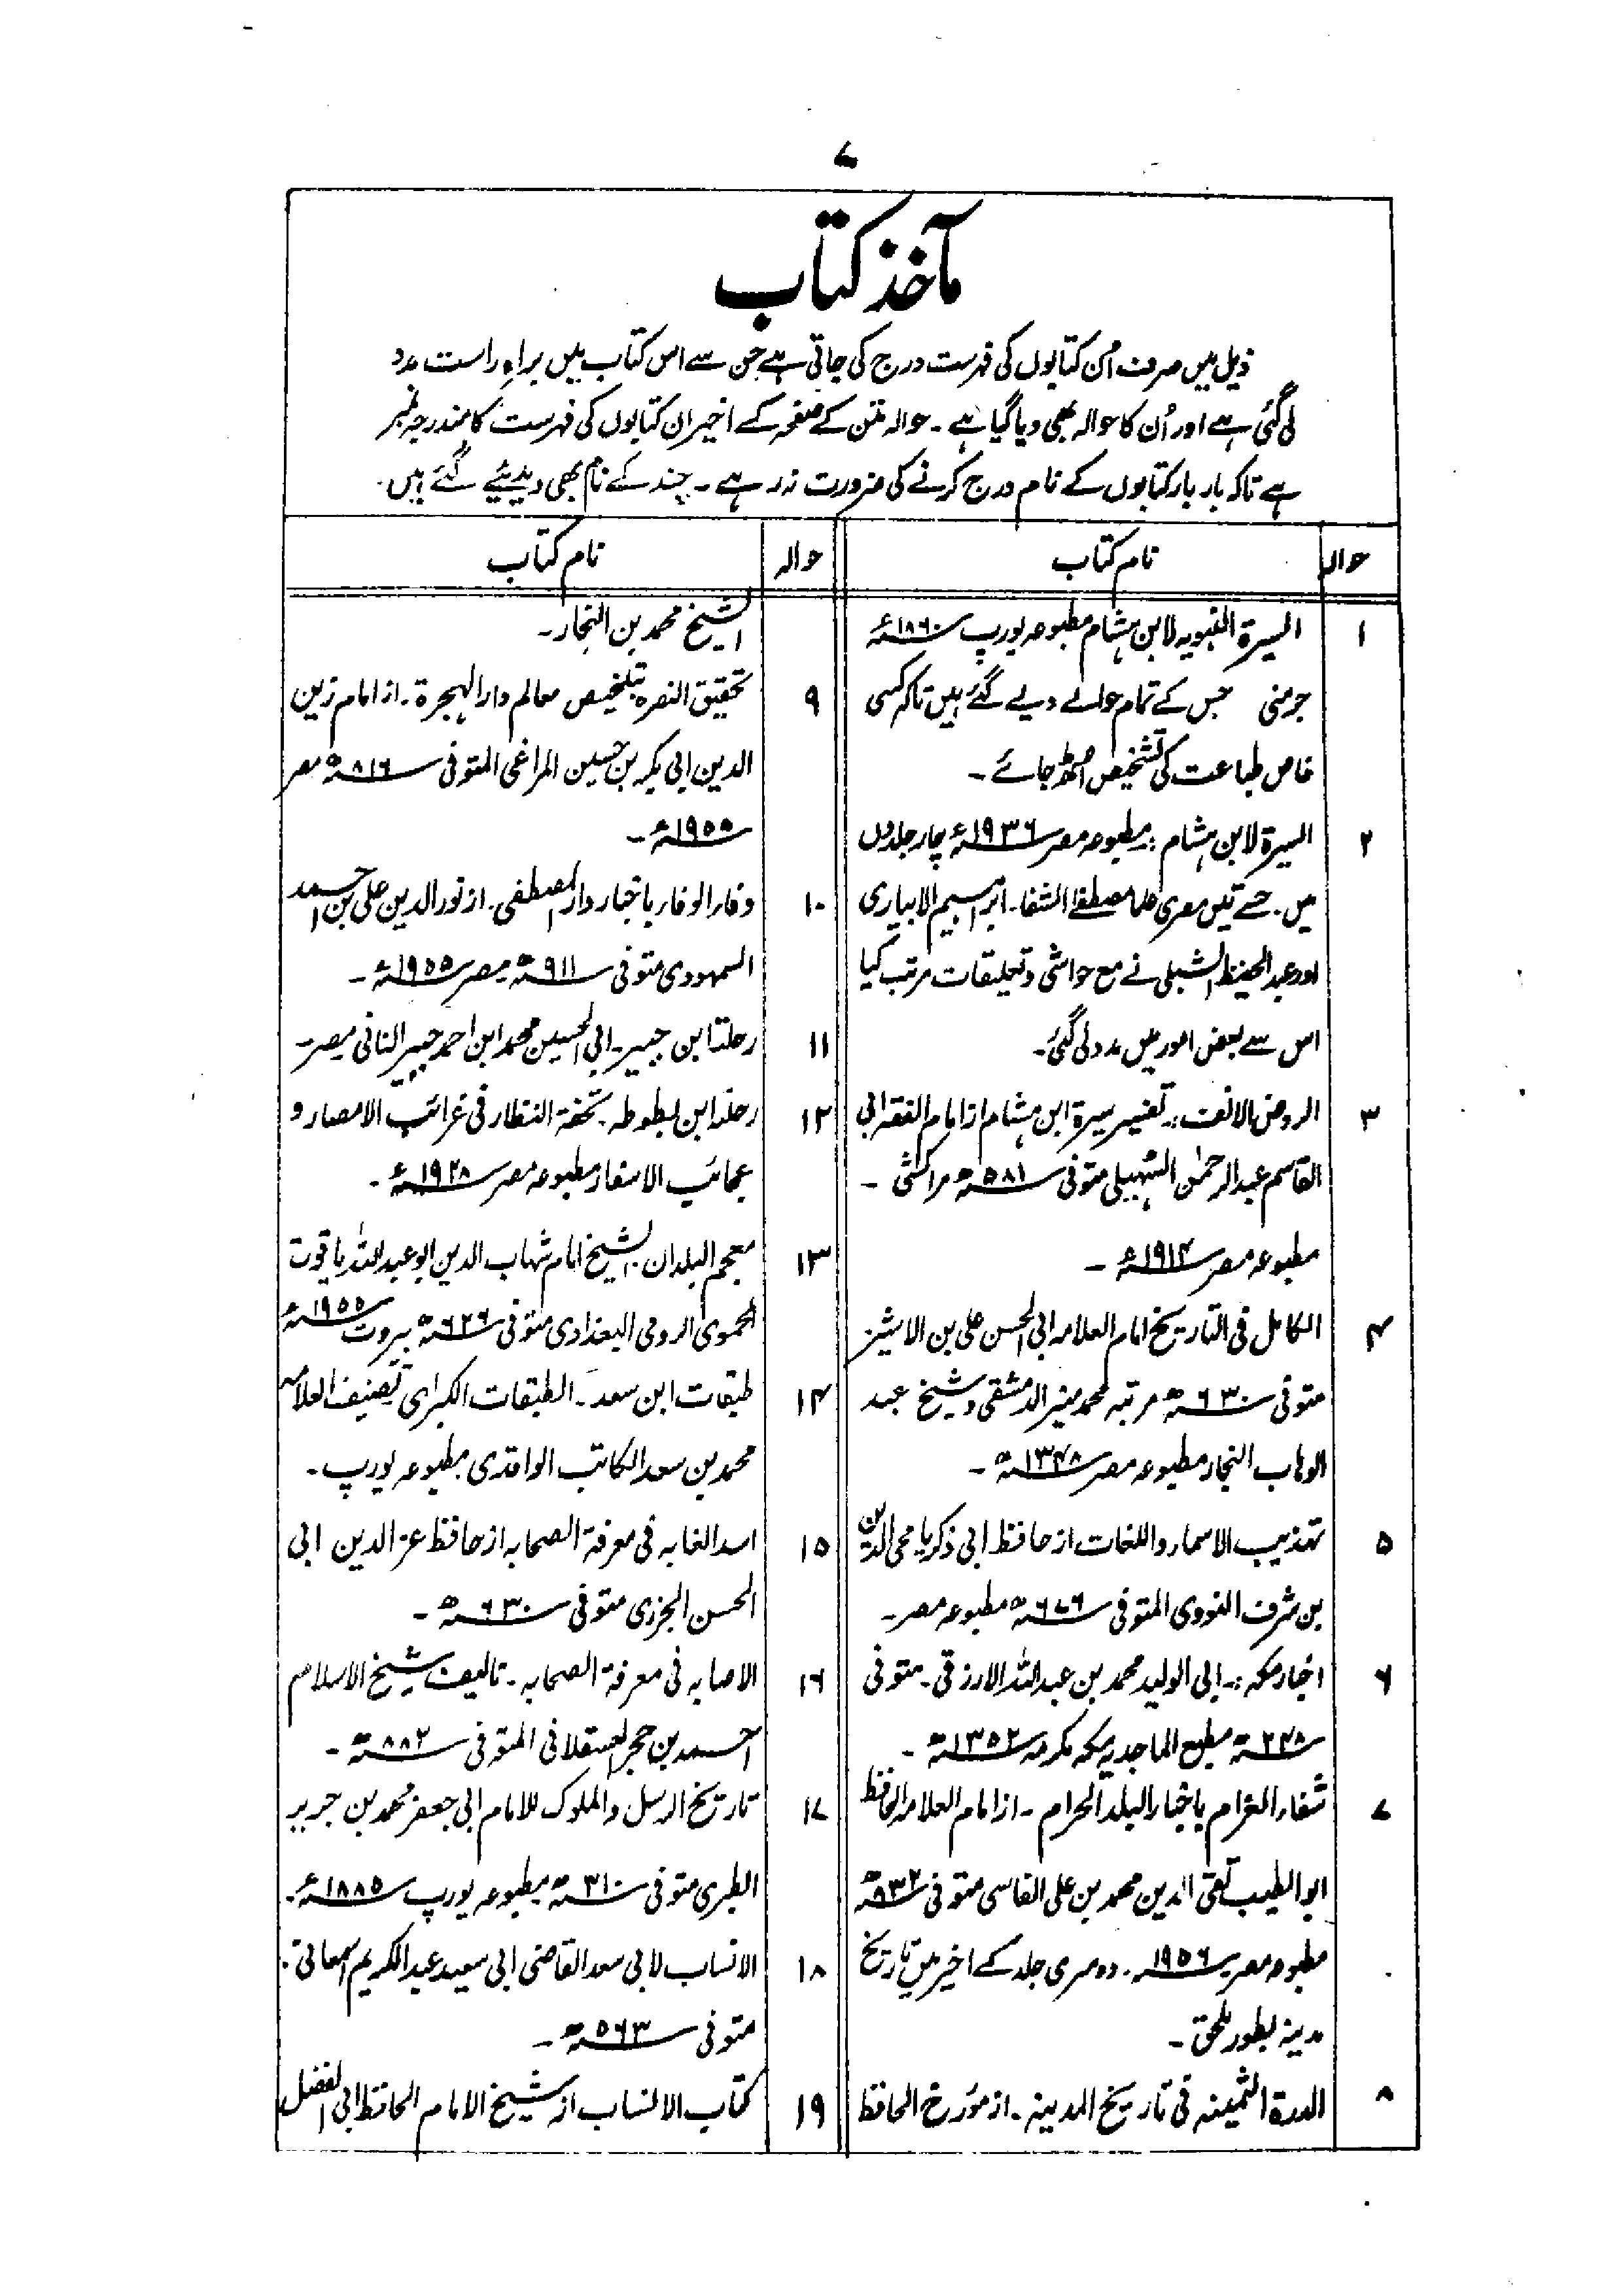 ۷
مآخذ کتاب
ذیل میں صرف اُن کتابوں کی فہرست درج کی جاتی ہے جن سے اس کتاب میں براہِ راست مدد
لی گئی ہے اور اُن کا حوالہ بھی دیا گیا ہے ۔ حوالہ متن کے صفحہ کے اخیر ان کتابوں کی فہرست کا مندرجہ نمبر
ہے تاکہ بار بار کتابوں کے نام درج کرنے کی ضرورت نہ رہے ۔ چند کے نام بھی دیدیئے گئے ہیں ۔
حوالہ نام کتاب
۱ السیرۃ النبویہ لابن ہشام مطبوعہ یورپ ۱۸۶۰ء
جرمنی جس کے تمام حوالے دیے گئے ہیں تاکہ کسی
خاص طباعت کی تشخیص اٹھ جائے ۔
۲ السیرۃ لابن ہشام :۔ مطبوعہ مصر ۱۹۳۶ء چار جلدوں
میں ۔ جسے تین مصری علما مصطفےٰ الشفا ۔ ابراہیم الابیاری
اور عبدالحفیظ الشبلی نے مع حواشی و تعلیقات مرتب کیا
اس سے بعض امور میں مدد لی گئی ۔
۳ الروض الانف :۔ تفسیر سیرۃ ابن ہشام از امام الفقہ ابی
القاسم عبدالرحمٰن السُہیلی متوفی ۵۸۱ھ مراکشی ۔
مطبوعہ مصر ۱۹۱۴ء ۔
۴ الکامل فی التاریخ امام العلامہ ابی الحسن علی بن الاثیر
متوفی ۶۳۰ھ مرتبہ محمد منیر الدمشقی و شیخ عبد
الوہاب النجار مطبوعہ مصر ۱۳۴۸ھ ۔
۵ تہذیب الاسماء واللغات از حافظ ابی ذکریا محی الدین
بن شرف النووی المتوفی ۶۷۶ھ مطبوعہ مصر ۔
۶ اخبار مکہ :۔ ابی الولید محمد بن عبداللہ الارزقی ۔ متوفی
۲۴۸ھ مطبع الماجدیہ مکہ مکرمہ ۱۳۵۲ھ ۔
۷ شفاء الغرام باخبار البلد الحرام ۔ از امام العلامہ الحافظ
ابو الطیب تقی الدین محمد بن علی الفاسی متوفی ۹۳۲ھ
مطبوعہ مصر ۱۹۵۶ء ۔ دوسری جلد کے اخیر میں تاریخ
مدینہ بطور ملحق ۔
۸ الدرۃ الثمینہ فی تاریخ المدینہ ۔ از مؤرخ الحافظ
حوالہ نام کتاب
الشیخ محمد بن النجار ۔
۹ تحقیق النصرہ بتلخیص معالم دار الہجرۃ ۔ از امام زین
الدین ابی بکر بن حسین المراغی المتوفی ۸۱۶ھ مصر
۱۹۵۵ء ۔
۱۰ وفاء الوفاء باخبار دار المصطفی ۔ از نور الدین علی بن احمد
السمہودی متوفی ۹۱۱ھ مصر ۱۹۵۵ء ۔
۱۱ رحلتہ ابن جبیر ۔ ابی الحسین محمد ابن احمد جبیر النانی مصر ۔
۱۲ رحلتہ ابن بطوطہ ۔ تحفۃ النظار فی غرائب الامصار و
عجائب الاسفار مطبوعہ مصر ۱۹۲۸ء ۔
۱۳ معجم البلدان :۔ الشیخ امام شہاب الدین ابو عبداللہ یاقوت
الحموی الرومی البغدادی متوفی ۶۲۶ھ بیروت ۱۹۵۵ء
۱۴ طبقات ابن سعد ۔ الطبقات الکبرای تصنیف العلامہ
محمد بن سعد الکاتب الواقدی مطبوعہ یورپ ۔
۱۵ اسد الغابہ فی معرفۃ الصحابہ از حافظ عز الدین ابی
الحسن الجزری متوفی ۶۳۰ھ ۔
۱۶ الاصابہ فی معرفۃ الصحابہ ۔ تالیف شیخ الاسلام
احمد بن حجر العسقلانی المتوفی ۸۸۲ھ ۔
۱۷ تاریخ الرسل والملوک للامام ابی جعفر محمد بن جریر
الطبری متوفی ۳۱۰ھ مطبوعہ یورپ ۱۸۸۵ء ۔
۱۸ الانساب لابی سعد القاضی ابی سعید عبدالکریم السمعانی ۔
متوفی ۵۶۳ھ ۔
۱۹ کتاب الانساب از شیخ الامام الحافظ ابی الفضل